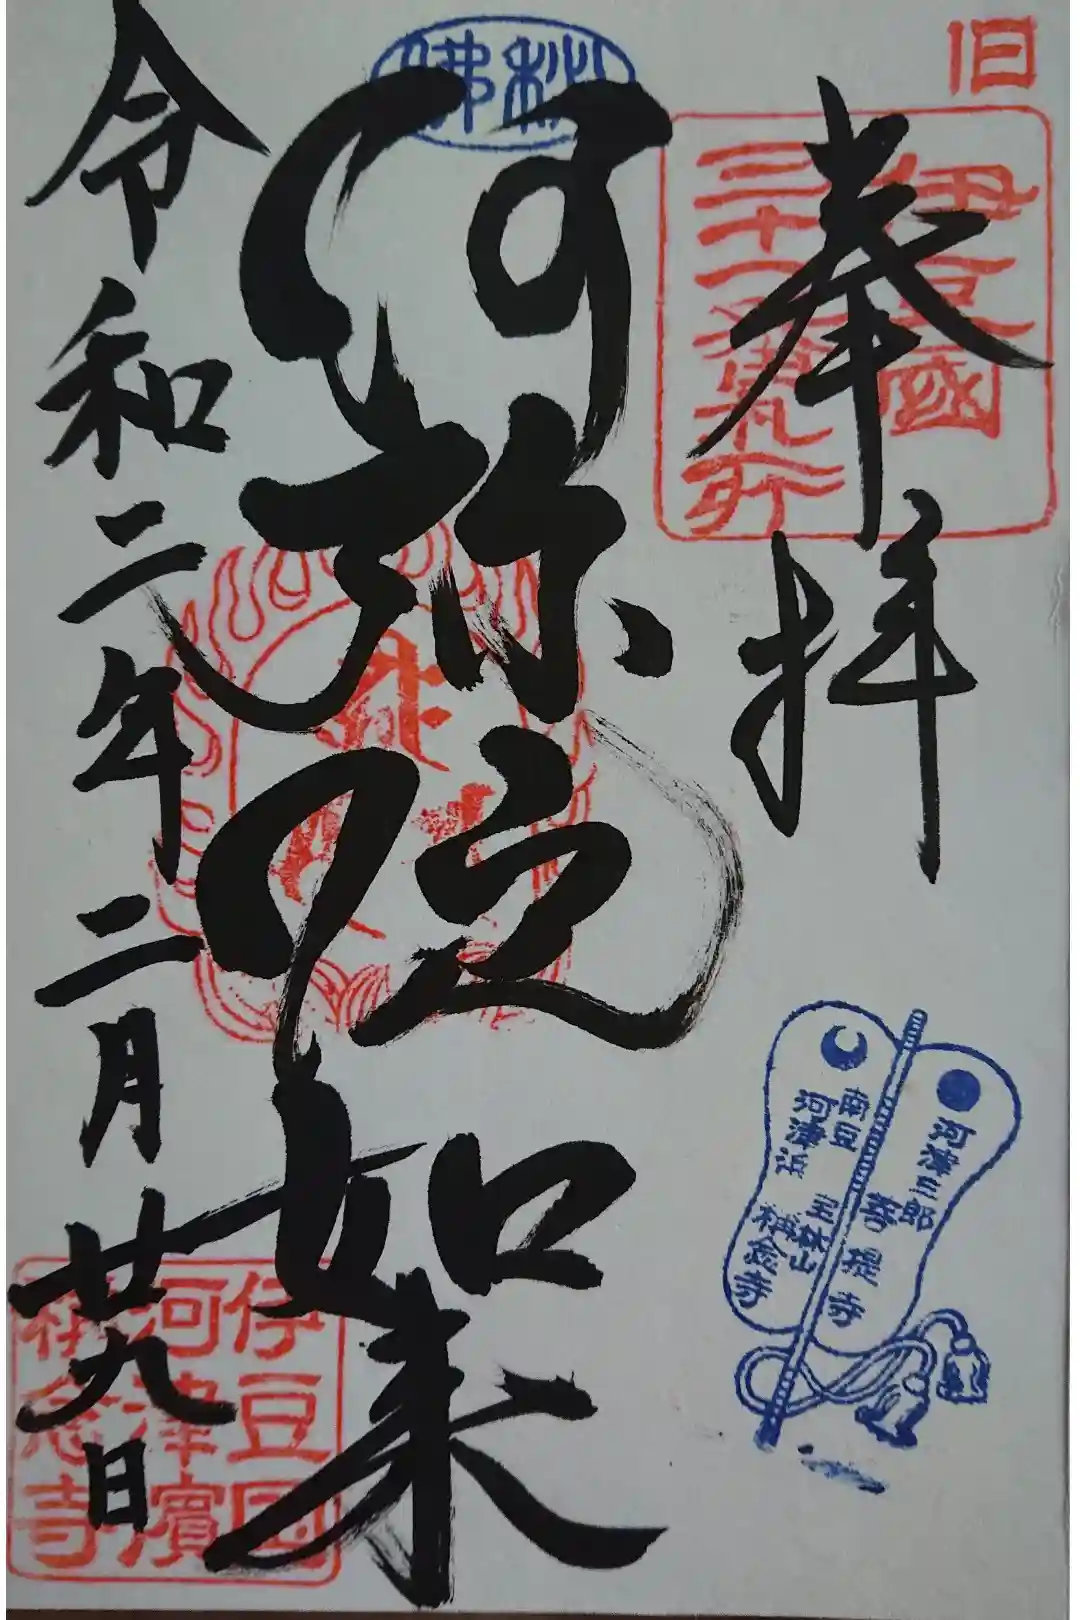 旧
伊豆國
三十三所
奉拝
阿弥陀如来
令和二年二月廿九日
河津三郎
菩提寺
南豆
河津浜
玉林山
称念寺
伊豆国
河津濱
称念寺